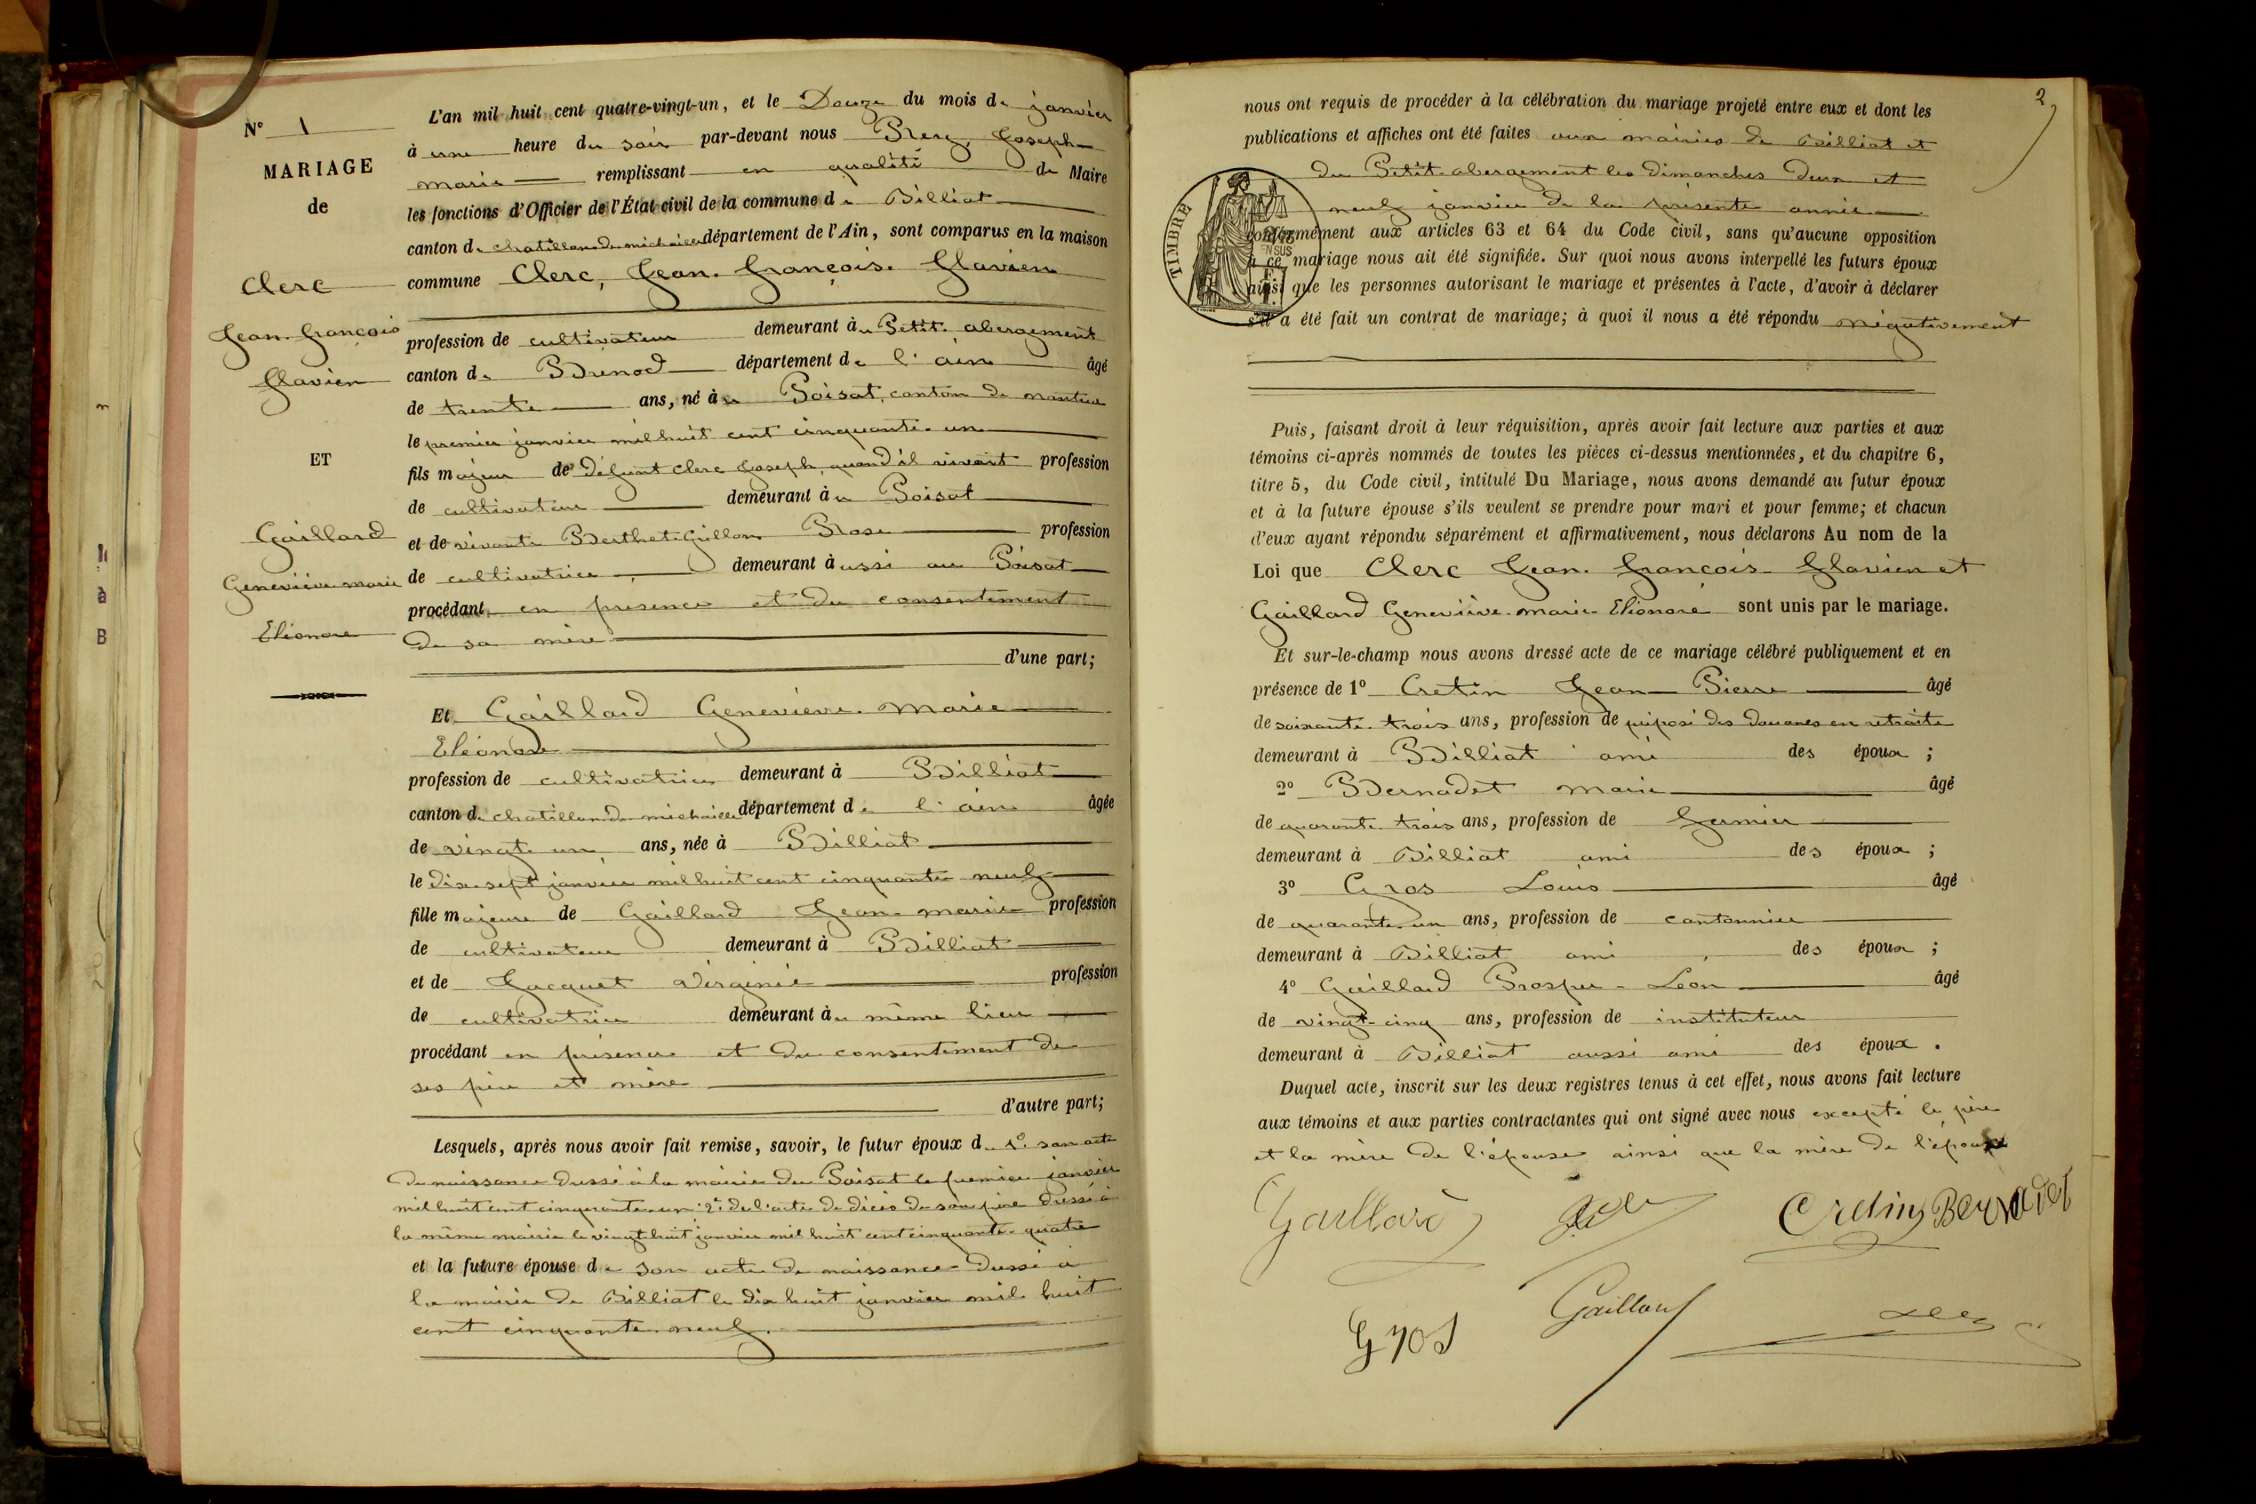 N° 1
MARIAGE
de
Clerc
Jean-françois
flavien
ET
Gaillard
Geneviève-marie
Eléonore
L'an mil huit cent quatre-vingt-un, et le Douze du mois de janvier
à une heure du soir par-devant nous Rey, Joseph-
marie remplissant en qualité de Maire
les fonctions d'Officier de l'État civil de la commune de Billiat
canton de chatillon de michaille département de l'Ain, sont comparus en la maison
commune Clerc, Jean-françois-flavien
profession de cultivateur demeurant au Petit-abergement
canton de Brénod département de l'ain âgé
de trente ans, né au Poisat, canton de nantua
le premier janvier mil huit cent cinquante-un
fils majeur de Défunt Clerc Joseph, quand il vivait profession
de cultivateur demeurant au Poisat
et de vivante Berthet-Guillon Rose profession
de cultivatrice, demeurant aussi au Poisat
procédant en présence et du consentement
de sa mère
d'une part;
Et Gaillard Geneviève-marie
Eléonore
profession de cultivatrice demeurant à Billiat
canton de chatillon de michaille département de l'ain âgée
de vingt un ans, née à Billiat
le dix-sept janvier mil huit cent cinquante neuf
fille majeure de Gaillard Jean-marie profession
de cultivateur demeurant à Billiat
et de Jacquet Virginie profession
de cultivatrice demeurant au même lieu
procédant en présence et du consentement de
ses père et mère
d'autre part;
Lesquels, après nous avoir fait remise, savoir, le futur époux de 1° son acte
de naissance dressé à la mairie du Poisat le premier janvier
mil huit cent cinquante-un 2° de l'acte de décès de son père dressé à
la même mairie le vingt huit janvier mil huit cent cinquante-quatre
et la future épouse de son acte de naissance dressé à
la mairie de Billiat le dix huit janvier mil huit
cent cinquante-neuf.
2
nous ont requis de procéder à la célébration du mariage projeté entre eux et dont les
publications et affiches ont été faites aux mairies de Billiat et
du Petit-abergement les dimanches deux et
neuf janvier de la présente année
conformément aux articles 63 et 64 du Code civil, sans qu'aucune opposition
à ce mariage nous ait été signifiée. Sur quoi nous avons interpellé les futurs époux
ainsi que les personnes autorisant le mariage et présentes à l'acte, d'avoir à déclarer
s'il a été fait un contrat de mariage; à quoi il nous a été répondu négativement
TIMBRE
EN SUS
Puis, faisant droit à leur réquisition, après avoir fait lecture aux parties et aux
témoins ci-après nommés de toutes les pièces ci-dessus mentionnées, et du chapitre 6,
titre 5, du Code civil, intitulé Du Mariage, nous avons demandé au futur époux
et à la future épouse s'ils veulent se prendre pour mari et pour femme; et chacun
d'eux ayant répondu séparément et affirmativement, nous déclarons Au nom de la
Loi que Clerc Jean-françois-flavien et
Gaillard Geneviève-marie Eléonore sont unis par le mariage.
Et sur-le-champ nous avons dressé acte de ce mariage célébré publiquement et en
présence de 1° Cretin Jean-Pierre âgé
de soixante-trois ans, profession de préposé des douanes en retraite
demeurant à Billiat ami des époux ;
2° Bernadet marie âgé
de quarante-trois ans, profession de fermier
demeurant à Billiat ami des époux ;
3° Gros Louis âgé
de quarante-un ans, profession de cantonnier
demeurant à Billiat ami des époux ;
4° Gaillard Prosper-Léon âgé
de vingt-cinq ans, profession de instituteur
demeurant à Billiat aussi ami des époux .
Duquel acte, inscrit sur les deux registres tenus à cet effet, nous avons fait lecture
aux témoins et aux parties contractantes qui ont signé avec nous excepté le père
et la mère de l'épouse ainsi que la mère de l'époux
Gaillard Cretin Bernadet
Gros Gaillard